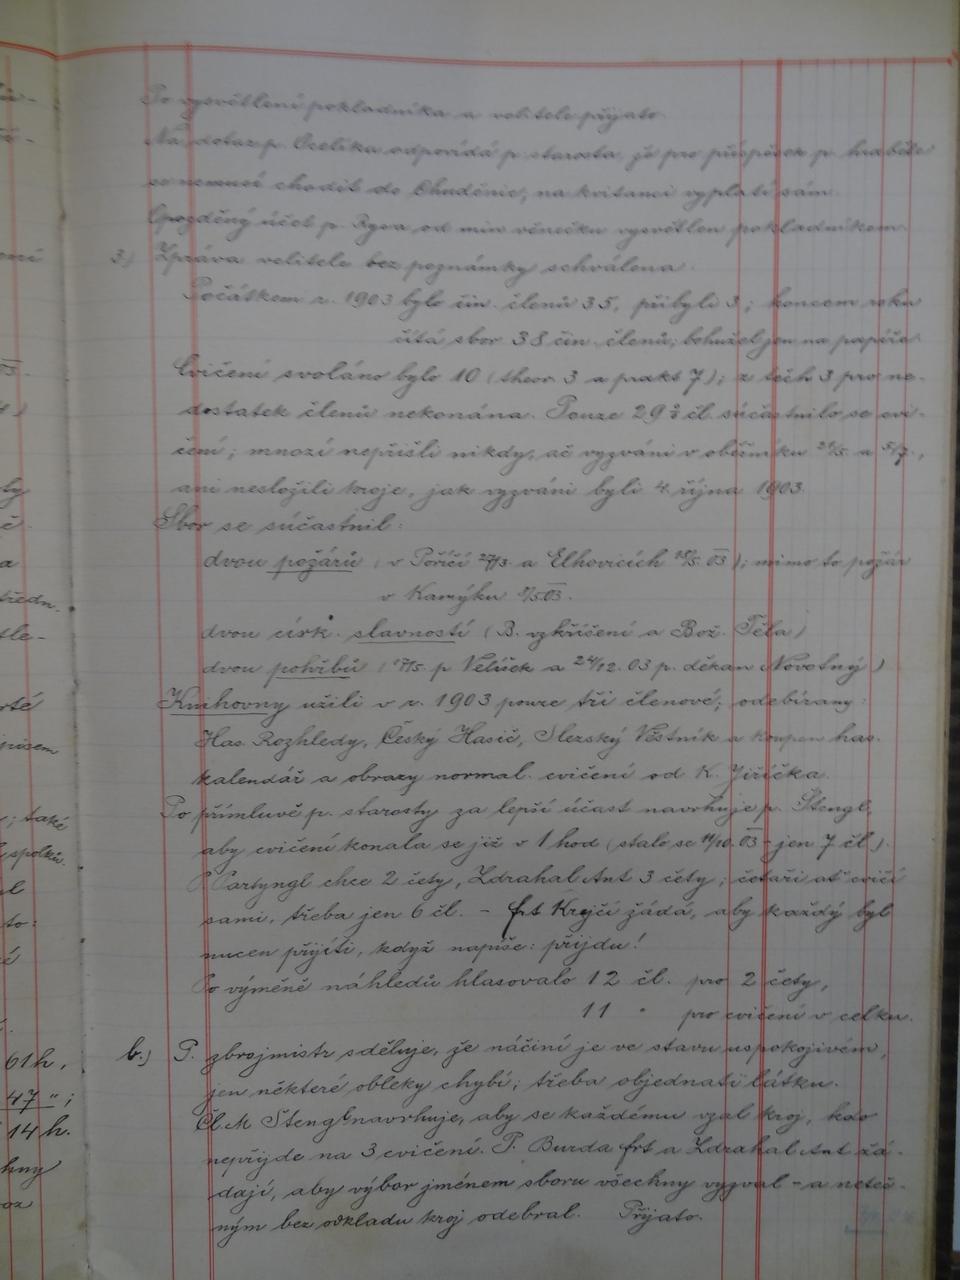 Po vysvětlení pokladníka a velitele přijato.
Na dotaz p. odpovídá p. starosta, že pro příspěvek p. hraběte
se nemusí chodit do Chuděnic, na kvitanci vyplatí sám.
Opozděný účet p. Ryva od min věnečku vysvětlen pokladníkem.
3.) Zpráva velitele bez poznámky schválena.
Počátkem r. 1903 bylo čin. členů 35, přibyli 3; koncem roku
čítá sbor 38 čin. členů, bohužel jen na papíře.
Cvičení svoláno bylo 10 (theor. 3 a prakt 7); z těch 3 pro ne-
dostatek členů nekonána. Pouze 29% čl. súčastnilo se cvi-
čení; mnozí nepřišli nikdy, ač vyzváni v oběžníku a 5/7.,
ani nesložili kroje, jak vyzváni byli 4. října 1903.
Sbor se súčastnil:
dvou požárů (v Poříčí 27/3. a Elhovicích 03); mimo to požár
v Kamýku
dvou círk. slavností (B. vzkříšení a Bož. Těla)
dvou pohřbů ( p. Velíšek a 24/12. 03 p. děkan Novotný)
Knihovny užili v r. 1903 pouze tři členové; odebírány:
Has. Rozhledy, Český Hasič, Slezský Věstník a koupen has.
kalendář a obrazy normal. cvičení od K. Jiříčka.
Po přímluvě p. starosty za lepší účast navrhuje p. Stengl,
aby cvičení konala se již v 1 hod (stalo se 11/10. 03 - jen 7 čl.).
P. Partyngl chce 2 čety, Zdrahal Ant 3 čety; četaři ať cvičí
sami, třeba jen 6 čl. - frt Krejčí žádá, aby každý byl
nucen přijíti, když napíše: přijdu!
Po výměně náhledů hlasovalo 12 čl. pro 2 čety,
11 " pro cvičení v celku.
b.) P. zbrojmistr sděluje, že náčiní je ve stavu uspokojivém,
jen některé obleky chybí; třeba objednati látku.
Čl. M Stengl navrhuje, aby se každému vzal kroj, kdo
nepřijde na 3 cvičení. P. Burda frt a Zdrahal Ant žá-
dají, aby výbor jménem sboru všechny vyzval - a neteč-
ným bez odkladu kroj odebral. Přijato.